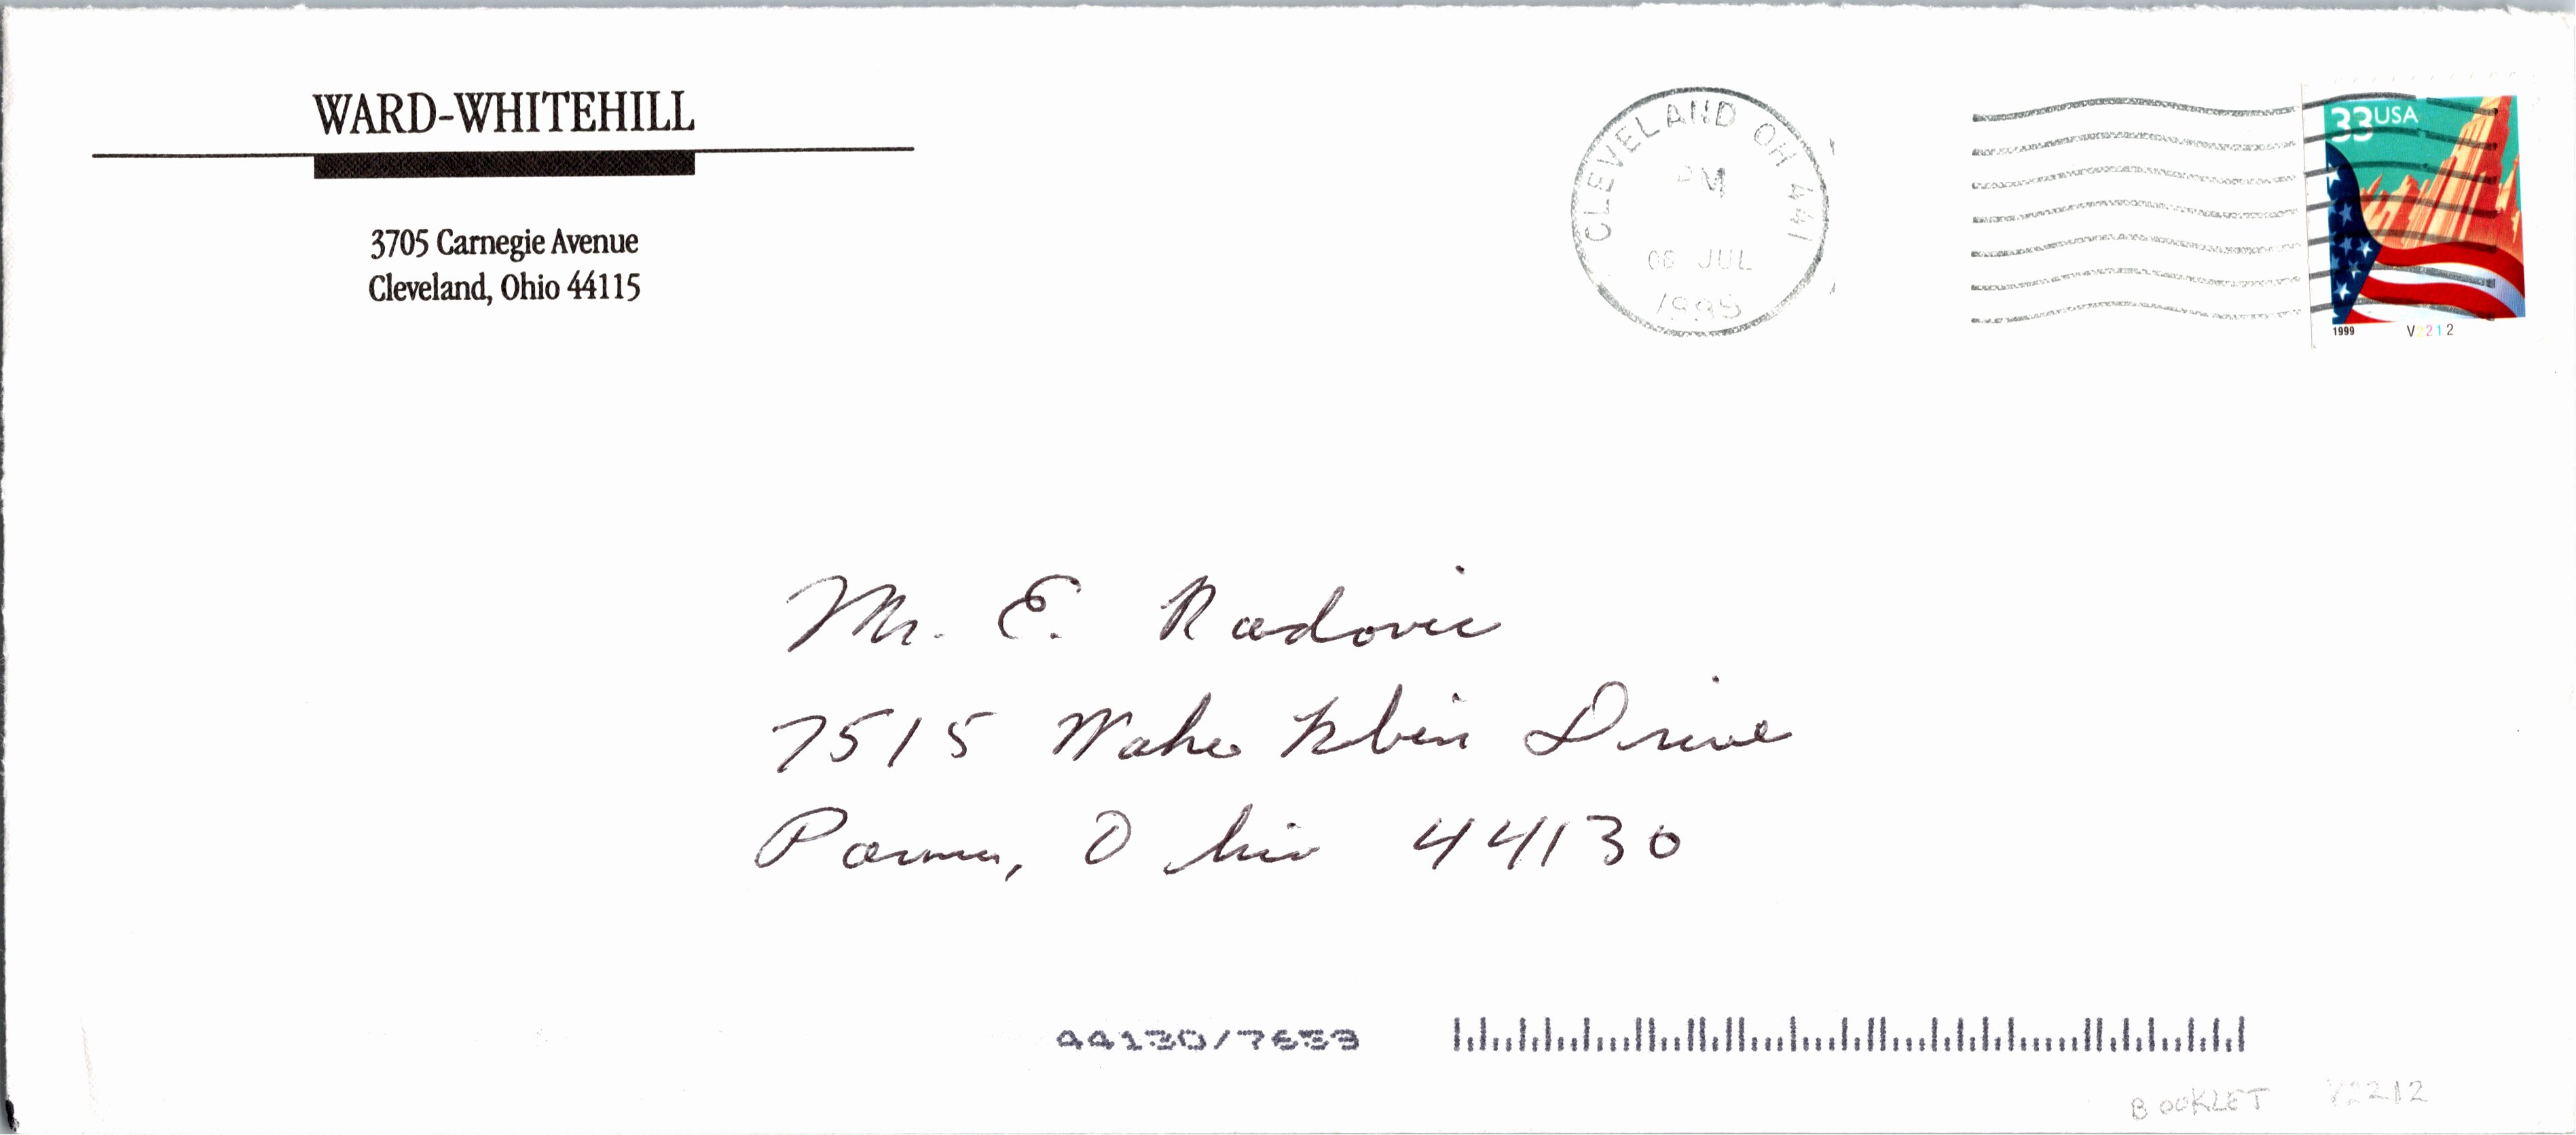 WARD-WHITEHILL
3705 Carnegie Avenue
Cleveland, Ohio 44115
CLEVELAND OH 441
PM
06 JUL
33USA
1999 V2212
Mr. E. Radovic
7515 Drive
Parma, Ohio 44130
44130/7633
BOOKLET V2212